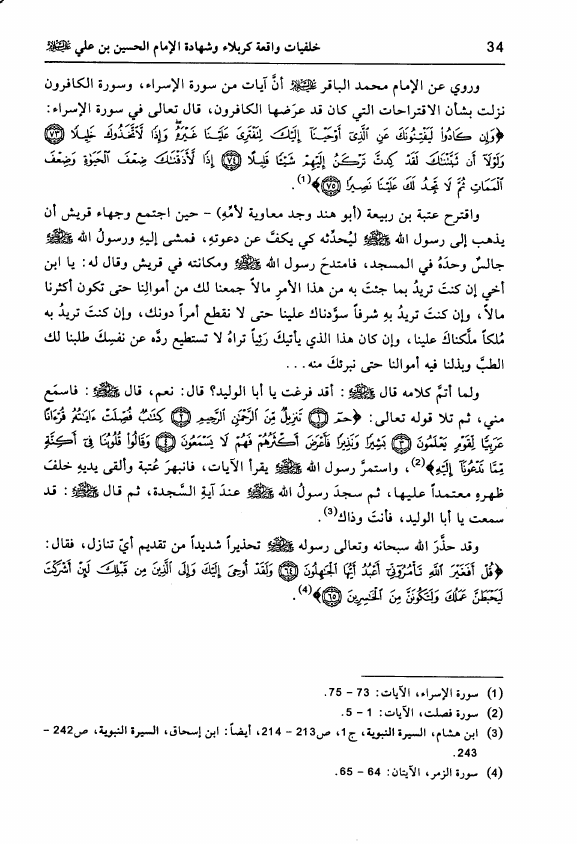 34 خلفيات واقعة كربلاء وشهادة الإمام الحسين بن علي ﵇
وروي عن الإمام محمد الباقر ﵇ أنَّ آيات من سورة الإسراء، وسورة الكافرون
نزلت بشأن الاقتراحات التي كان قد عرَضها الكافرون، قال تعالى في سورة الإسراء:
﴿وَإِن كَادُوا۟ لَيَفْتِنُونَكَ عَنِ ٱلَّذِىٓ أَوْحَيْنَآ إِلَيْكَ لِتَفْتَرِىَ عَلَيْنَا غَيْرَهُۥ وَإِذًا لَّٱتَّخَذُوكَ خَلِيلًا ٧٣
وَلَوْلَآ أَن ثَبَّتْنَٰكَ لَقَدْ كِدتَّ تَرْكَنُ إِلَيْهِمْ شَيْـًٔا قَلِيلًا ٧٤ إِذًا لَّأَذَقْنَٰكَ ضِعْفَ ٱلْحَيَوٰةِ وَضِعْفَ
ٱلْمَمَاتِ ثُمَّ لَا تَجِدُ لَكَ عَلَيْنَا نَصِيرًا ٧٥﴾(1).
واقترح عتبة بن ربيعة (أبو هند وجد معاوية لأمّهِ) - حين اجتمع وجهاء قريش أن
يذهب إلى رسول الله ﷺ ليُحدِّثه كي يكفَّ عن دعوتهِ، فمشى إليهِ ورسولُ الله ﷺ
جالسٌ وحدَهُ في المسجد، فامتدحَ رسول الله ﷺ ومكانته في قريش وقال له: يا ابن
أخي إن كنتَ تريدُ بما جئتَ به من هذا الأمرِ مالاً جمعنا لك من أموالِنا حتى تكون أكثرنا
مالاً، وإن كنتَ تريدُ بهِ شرفاً سوَّدناك علينا حتى لا نقطع أمراً دونك، وإن كنتَ تريدُ به
مُلكاً ملَّكناكَ علينا، وإن كان هذا الذي يأتيكَ رَئِياً تراهُ لا تستطيع ردَّه عن نفسِكَ طلبنا لك
الطبَّ وبذلنا فيه أموالنا حتى نبرئكَ منه...
ولما أتمَّ كلامه قال ﷺ: أقد فرغتَ يا أبا الوليد؟ قال: نعم، قال ﷺ: فاسمَع
مني، ثم تلا قوله تعالى: ﴿حمٓ ١ تَنزِيلٌ مِّنَ ٱلرَّحْمَٰنِ ٱلرَّحِيمِ ٢ كِتَٰبٌ فُصِّلَتْ ءَايَٰتُهُۥ قُرْءَانًا
عَرَبِيًّا لِّقَوْمٍ يَعْلَمُونَ ٣ بَشِيرًا وَنَذِيرًا فَأَعْرَضَ أَكْثَرُهُمْ فَهُمْ لَا يَسْمَعُونَ ٤ وَقَالُوا۟ قُلُوبُنَا فِىٓ أَكِنَّةٍ
مِّمَّا تَدْعُونَآ إِلَيْهِ﴾(2)، واستمرَّ رسول الله ﷺ يقرأ الآيات، فانبهرَ عُتبة وألقى يديهِ خلفَ
ظهرِهِ معتمداً عليها، ثم سجدَ رسولُ الله ﷺ عندَ آيةِ السَّجدة، ثم قال ﷺ: قد
سمعت يا أبا الوليد، فأنتَ وذاك(3).
وقد حذَّرَ الله سبحانه وتعالى رسوله ﷺ تحذيراً شديداً من تقديم أيّ تنازل، فقال:
﴿قُلْ أَفَغَيْرَ ٱللَّهِ تَأْمُرُوٓنِّىٓ أَعْبُدُ أَيُّهَا ٱلْجَٰهِلُونَ ٦٤ وَلَقَدْ أُوحِىَ إِلَيْكَ وَإِلَى ٱلَّذِينَ مِن قَبْلِكَ لَئِنْ أَشْرَكْتَ
لَيَحْبَطَنَّ عَمَلُكَ وَلَتَكُونَنَّ مِنَ ٱلْخَٰسِرِينَ ٦٥﴾(4).
(1) سورة الإسراء، الآيات: 73 - 75.
(2) سورة فصلت، الآيات: 1 - 5.
(3) ابن هشام، السيرة النبوية، ج1، ص213 - 214، أيضاً: ابن إسحاق، السيرة النبوية، ص242 -
243.
(4) سورة الزمر، الآيتان: 64 - 65.